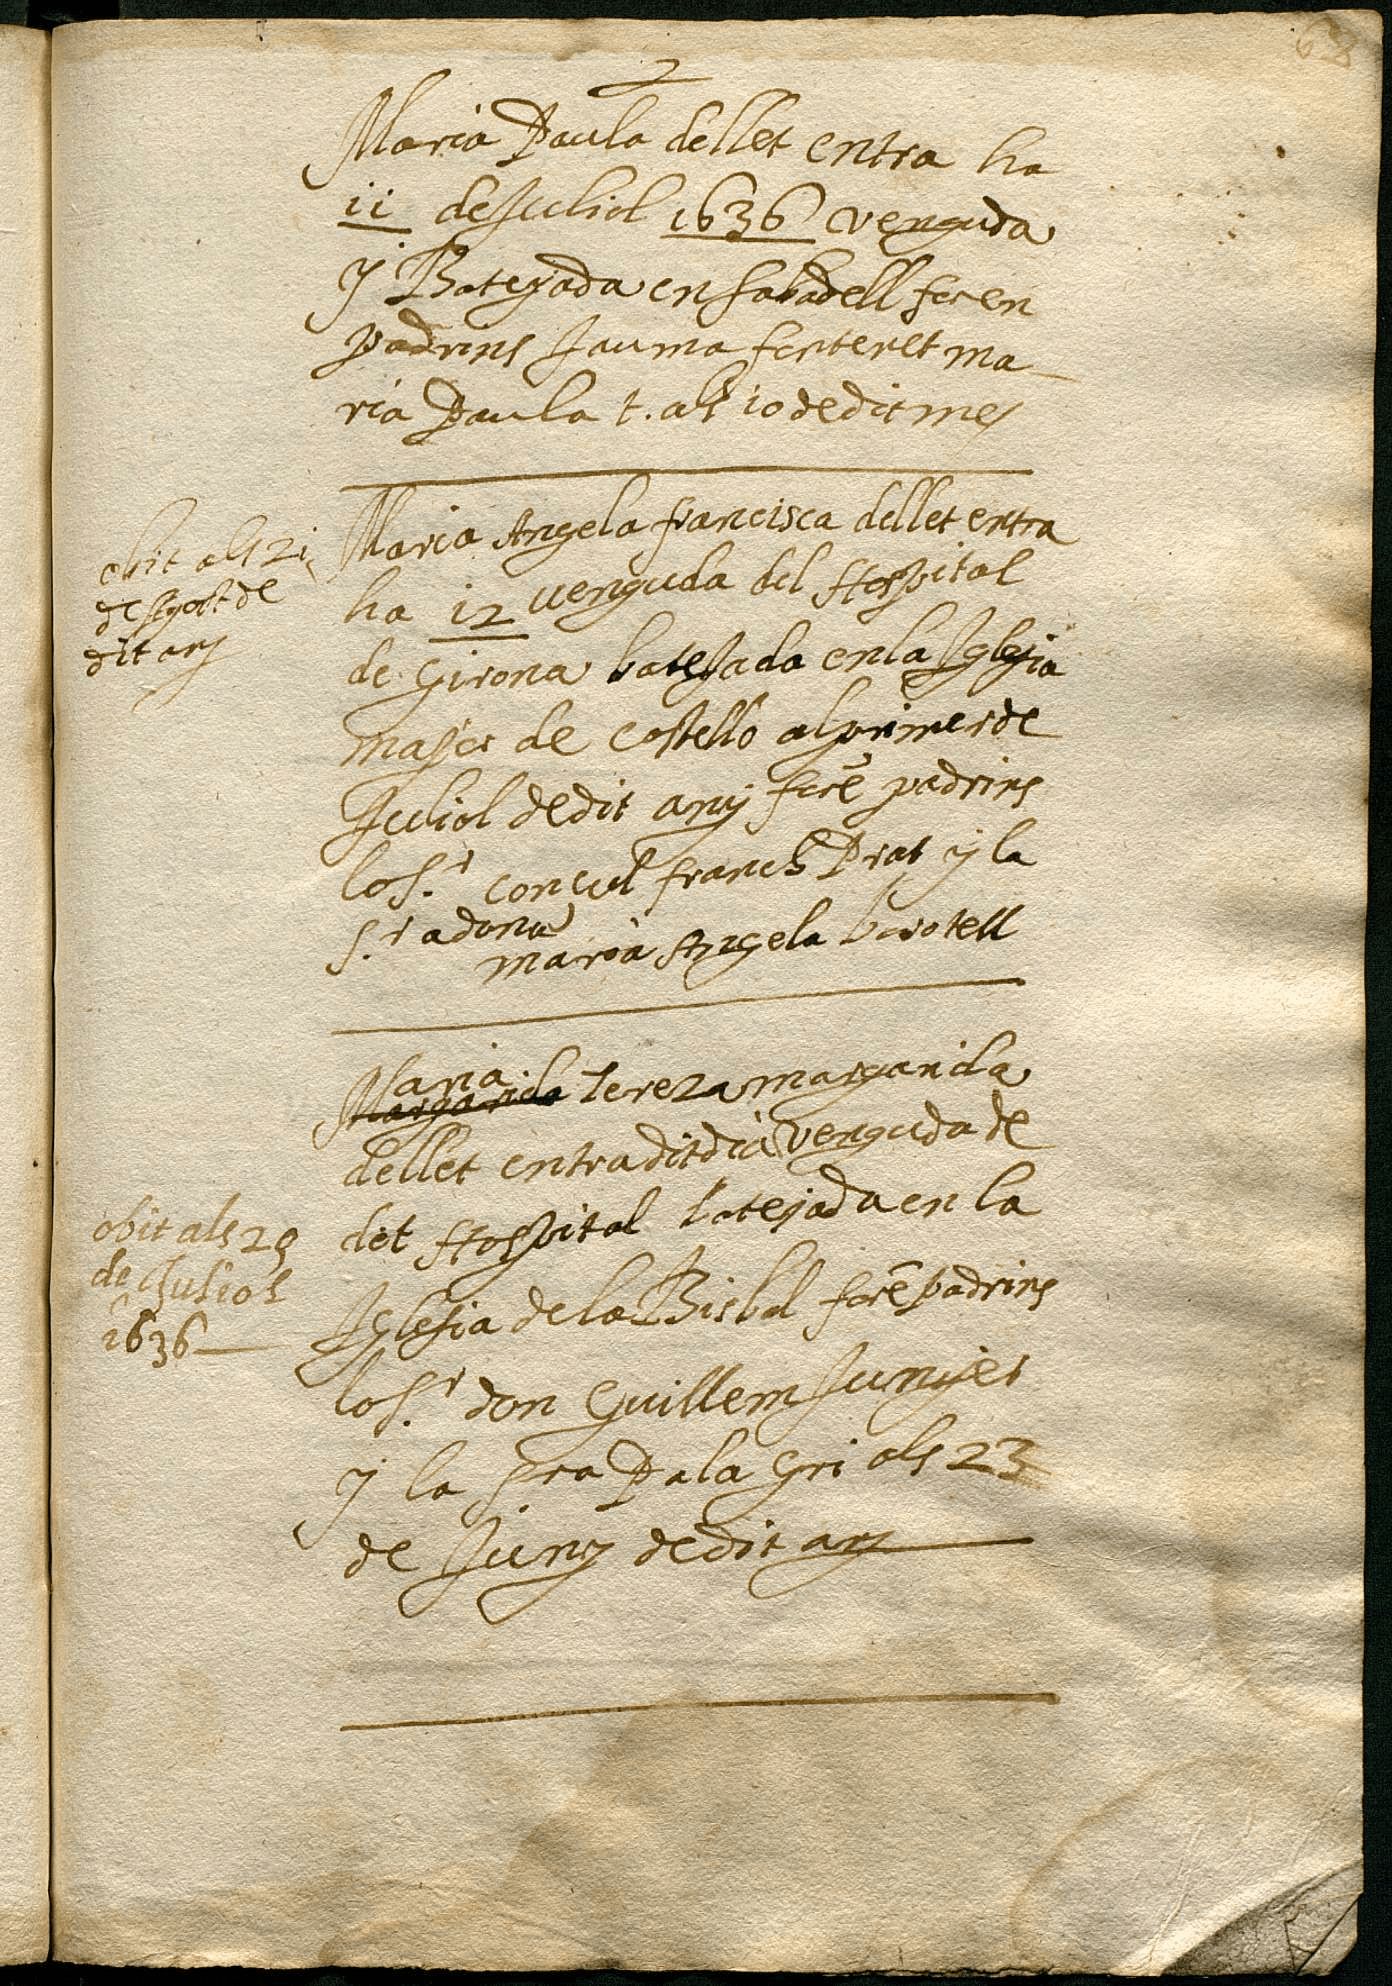 68
2
Maria Paula dellet entra ha
ii de Juliol 1636 venguda
y Batejada en sabadell foren
padrins Jauma ma
ria Paula t. als 10 de dit mes
Maria Angela francisca dellet entra
ha 12 venguda del Hospital
de Girona batejada en la Iglesia
major de Castello al primer de
Juliol de dit any forē padrins
lo s.r concul Prat y la
s.ra dona
maria Angela
obit als 21
de Agost de
dit any
Maria
Margarida Tereza margarida
dellet entra dit dia venguda de
dit Hospital batejada en la
Iglesia de la Bisbal forē padrins
lo s.r don Guillem Junyer
y la sra Pala Gri als 23
de Juny de dit any
obit als 29
de Juliol
1636